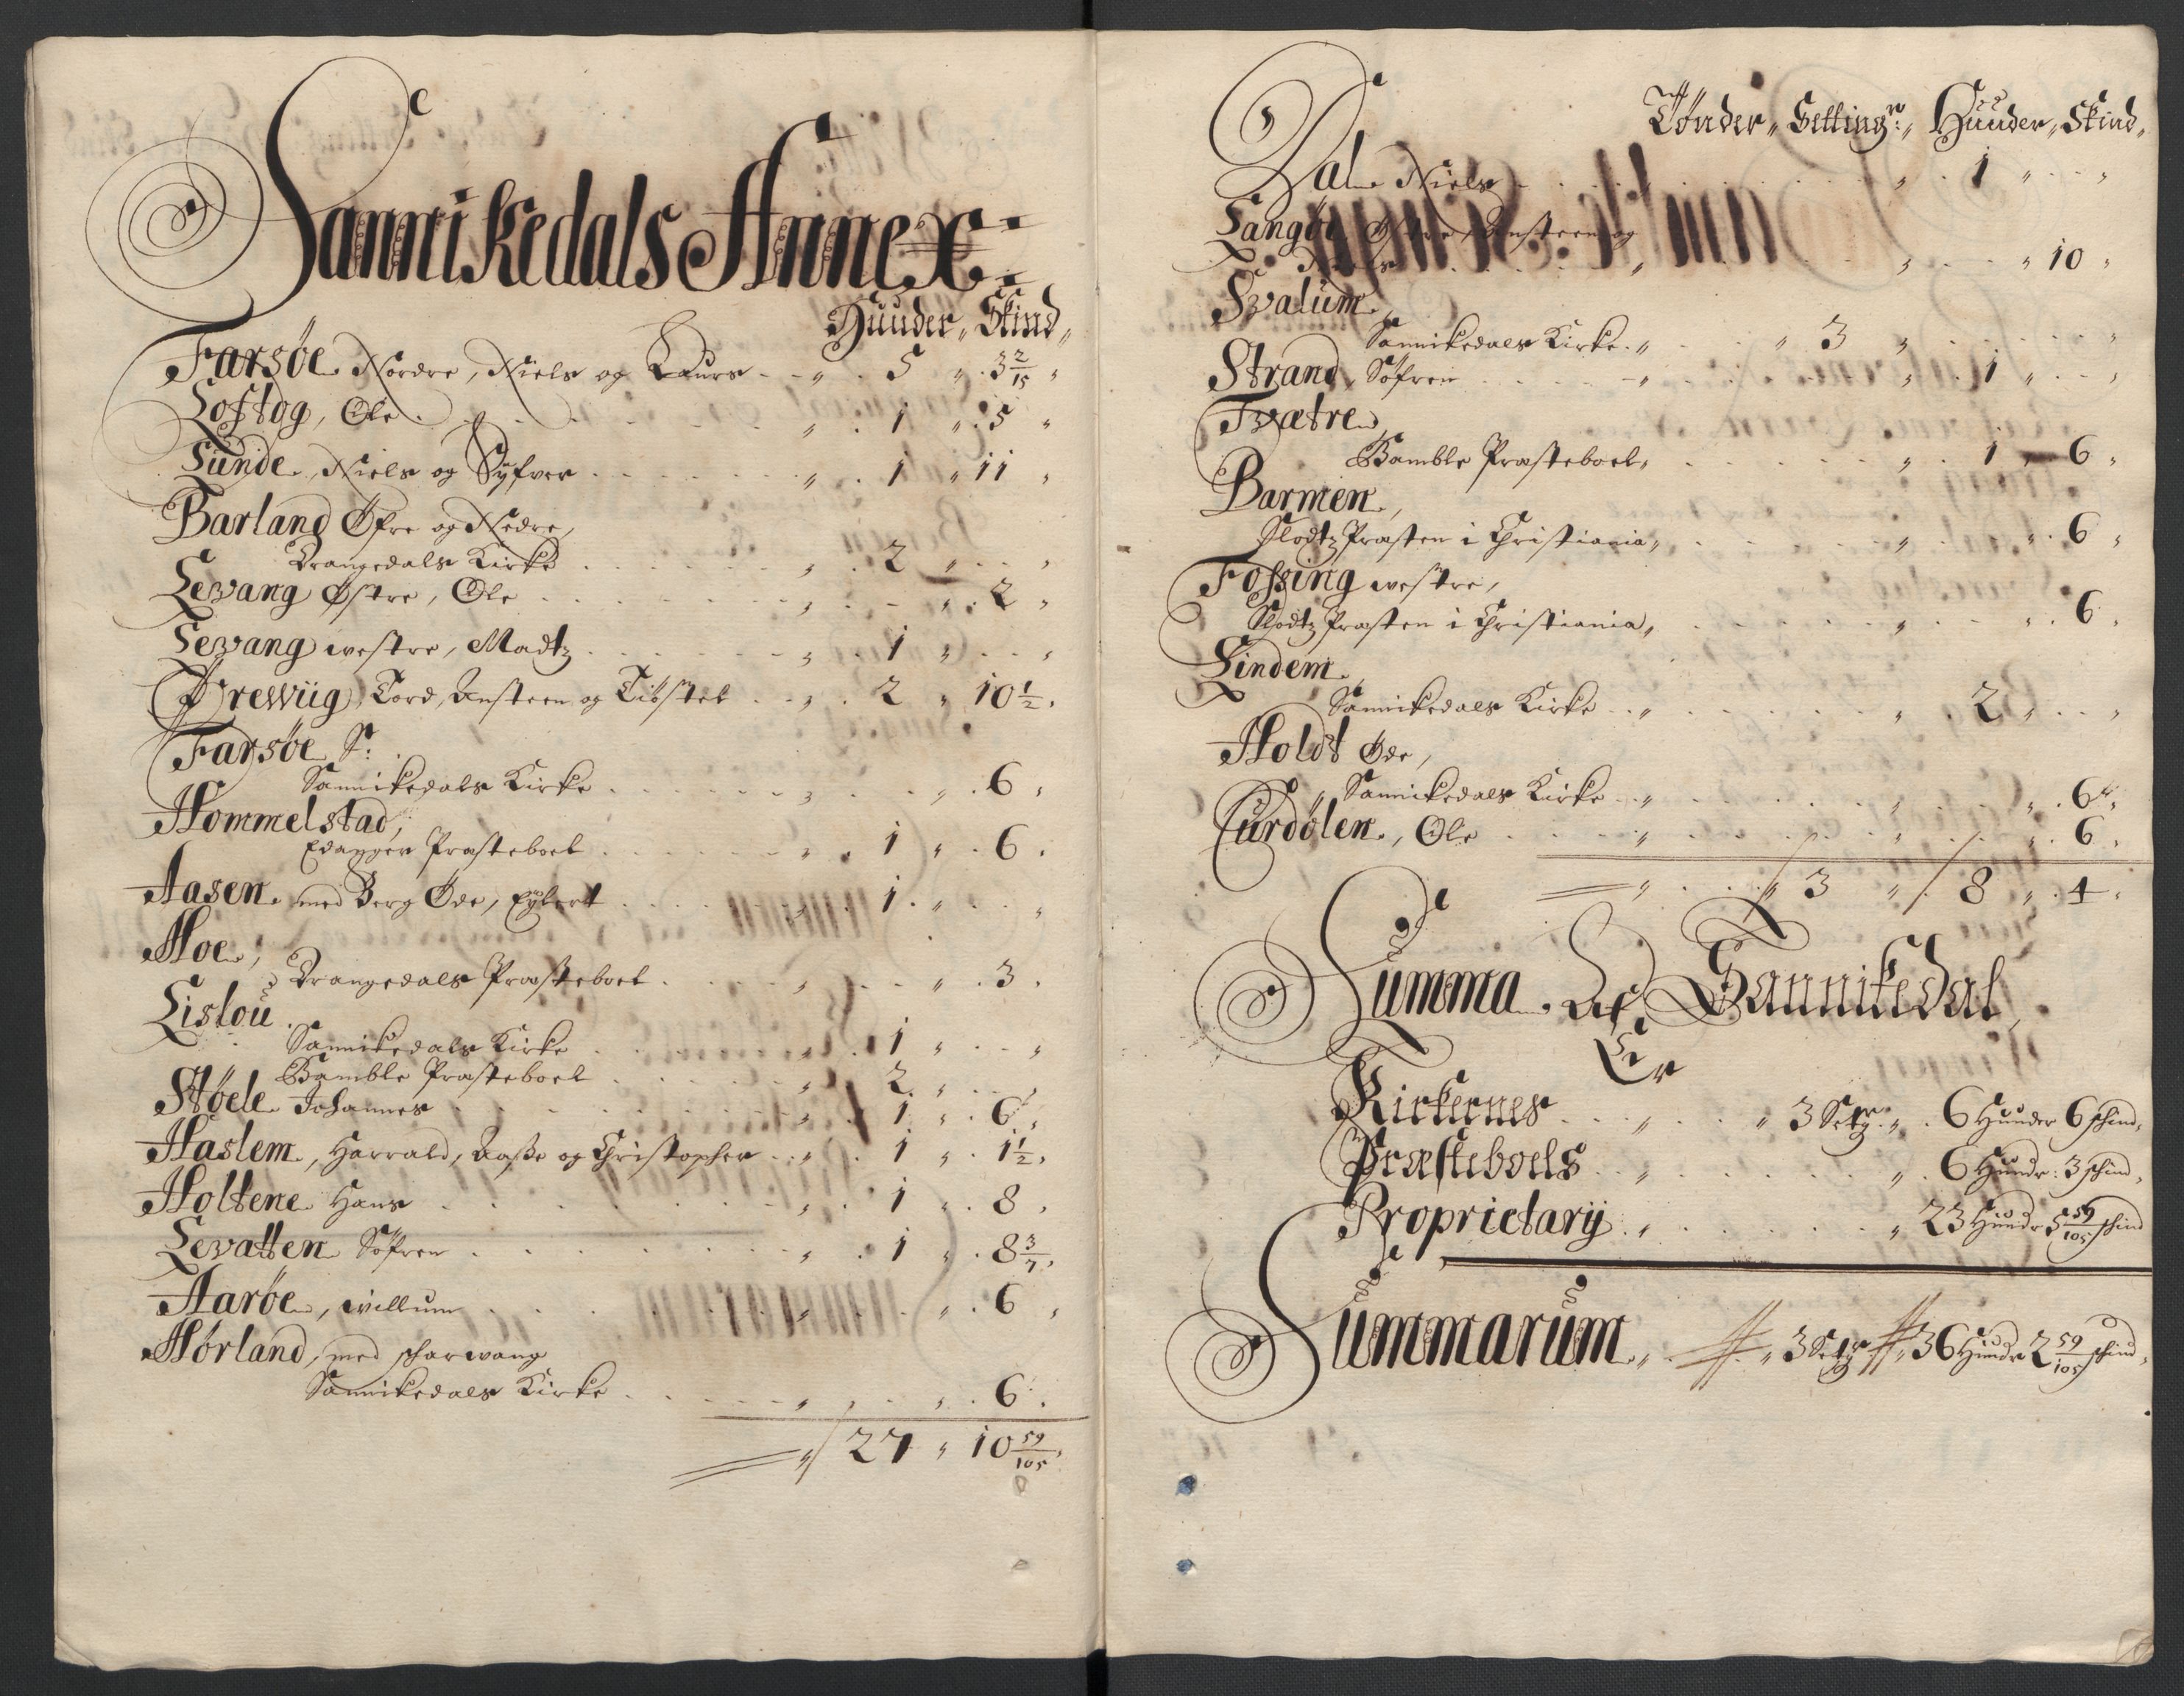 Sannikedals Annex:
Huuder, Skind,
Farsøe Nordre, Niels og Laurs - - „ . 5 „ . 3 2/15 „
Loftog, Ole . „ . 1 „ . 5 „
Lunde, Niels og Syfver . „ . 1 „ 11 „
Barland Øfre og Nedre,
Drangedals Kirke . „ . 2 „ . . „
Levang Østre, Ole . „ . - „ . 2 „
Levang westre, Madtz . „ . 1 „ . . „
Ørewiig, Tord, Ansteen og Tiøstel . „ . 2 „ 10 1/2 „
Farsøe S:
Sannikedals Kirke . „ . . „ . 6 „
Hommelstad,
Edanger Præsteboel . „ . 1 „ . 6 .
Aasen med Berg Øde, Eylert . „ . 1 . „ . . „
Hoe,
Drangedals Præsteboel . „ . - „ . 3 .
Lislou
Sannikedals Kirke . „ . 1 „ . . „
Bamble Præsteboel . „ . 2 . „ . . „
Støele Johannes . „ . 1 . „ . 6 „
Haslem, Harrald, Aaße og Christopher . „ . 1 „ . 1 1/2 „
Holtene Hans . „ . 1 „ . 8 „
Levatten Søfren . „ . 1 „ . 8 3/7 „
Aarøe, willum . „ . . „ . 6 „
Hørland, med scharwang
Sannikedals Kirke . „ . . „ . 6 .
„ 27 „ 10 59/105 „
Tønder „ Setting:r „ Huuder „ Skind „
Dal Niels . „ . 1 „ . . „
Langøe Østre, Ansteen og
Niels . „ . . „ 10 „
Svalum,
Sannikedals Kirke . „ . „ 3 „ . . „
Strand, Søfren . „ . „ . 1 „ . . „
Tvætre,
Bamble Præsteboel „ . „ . 1 „ 6 „
Barmen,
Slodtz Præsten i Christiania „ . „ . . „ . 6 „
Fossing westre,
Slodtz Præsten i Christiania „ . „ . . „ . 6 „
Lindem,
Sannikedals Kirke . „ . „ . 2 „ . . „
Holdt Øde,
Sannikedals Kirke . „ . „ . „ . 6 „
Curdølen, Ole . „ . „ . „ . 6 „
„ . „ 3 „ . 8 „ . 4 .
Summa. Af Sannikedal,
Er
Kirkernes . „ . „ 3 Setg:r „ . 6 Huuder 6 schind,
Præsteboels . „ . „ . 6 Huudr: 3 schind,
Proprietarij . „ . „ 23 Huudr 5 59/105 schind
Summarum „ . „ 3 Setg:r „ 36 Huudr 2 59/105 schind,